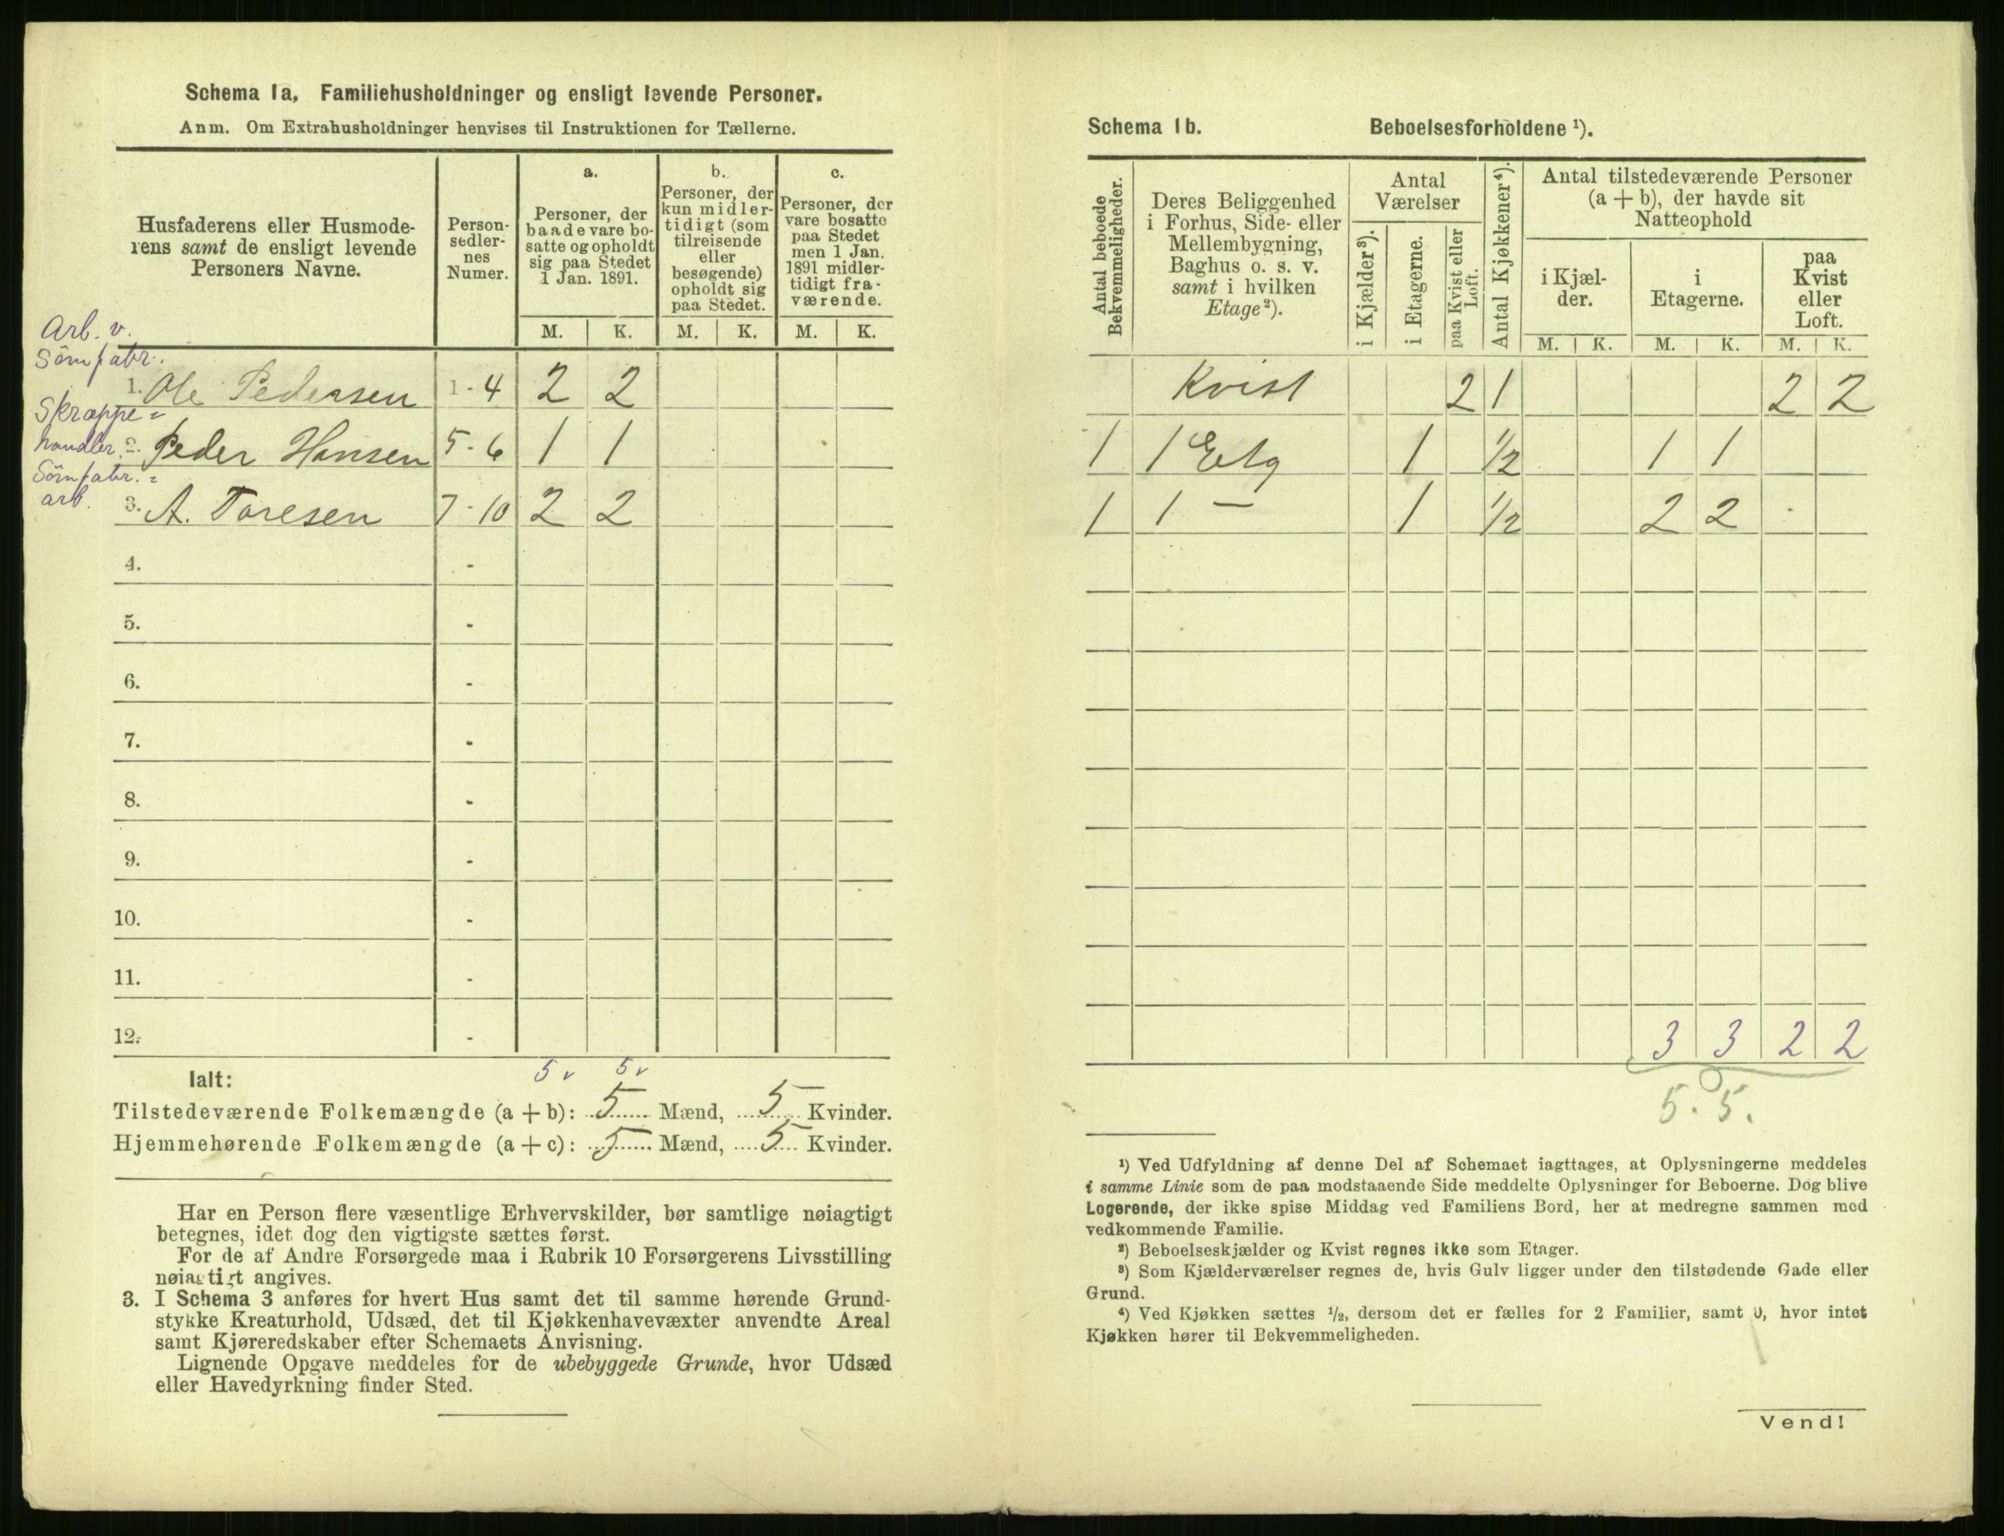 Schema 1a, Familiehusholdninger og ensligt levende Personer.
Anm. Om Extrahusholdninger henvises til Instruktionen for Tællerne.
Husfaderens eller Husmode-
rens samt de ensligt levende
Personers Navne.
Person-
sedler-
nes
Numer.
a.
Personer, der
baade vare bo-
satte og opholdt
sig paa Stedet
1 Jan. 1891.
b.
Personer, der
kun midler-
tidigt (som
tilreisende
eller
besøgende)
opholdt sig
paa Stedet.
c.
Personer, der
vare bosatte
paa Stedet
men 1 Jan.
1891 midler-
tidigt fra-
værende.
M. K. M. K. M. K.
Arb. v.
Sömfabr.
1. Ole Pedersen 1 - 4 2 2
Skrappe=
handler
2. Peder Hansen 5 - 6 1 1
Sömfabr.=
arb.
3. A. Toresen 7 - 10 2 2
4. -
5. -
6. -
7. -
8. -
9. -
10. -
11. -
12. -
5 v 5 v
Ialt:
Tilstedeværende Folkemængde (a + b): 5 Mænd, 5 Kvinder.
Hjemmehørende Folkemængde (a + c): 5 Mænd, 5 Kvinder.
Har en Person flere væsentlige Erhvervskilder, bør samtlige nøiagtigt
betegnes, idet dog den vigtigste sættes først.
For de af Andre Forsørgede maa i Rubrik 10 Forsørgerens Livsstilling
nøiagtigt angives.
3. I Schema 3 anføres for hvert Hus samt det til samme hørende Grund-
stykke Kreaturhold, Udsæd, det til Kjøkkenhavevæxter anvendte Areal
samt Kjøreredskaber efter Schemaets Anvisning.
Lignende Opgave meddeles for de ubebyggede Grunde, hvor Udsæd
eller Havedyrkning finder Sted.
Schema 1b. Beboelsesforholdene ¹).
Antal beboede
Bekvemmeligheder.
Deres Beliggenhed
i Forhus, Side- eller
Mellembygning,
Baghus o. s. v.
samt i hvilken
Etage²).
Antal
Værelser
i Kjælder³).
i Etagerne.
paa Kvist eller
Loft.
Antal Kjøkkener⁴).
Antal tilstedeværende Personer
(a + b), der havde sit
Natteophold
i Kjæl-
der.
i
Etagerne.
paa
Kvist
eller
Loft.
M. K. M. K. M. K.
Kvist 2 1 2 2
1 1 Etg 1 1/2 1 1
1 1 — 1 1/2 2 2
3 3 2 2
5. 5.
¹) Ved Udfyldning af denne Del af Schemaet iagttages, at Oplysningerne meddeles
i samme Linie som de paa modstaaende Side meddelte Oplysninger for Beboerne. Dog blive
Logerende, der ikke spise Middag ved Familiens Bord, her at medregne sammen med
vedkommende Familie.
²) Beboelseskjælder og Kvist regnes ikke som Etager.
³) Som Kjælderværelser regnes de, hvis Gulv ligger under den tilstødende Gade eller
Grund.
⁴) Ved Kjøkken sættes ½, dersom det er fælles for 2 Familier, samt 0, hvor intet
Kjøkken hører til Bekvemmeligheden.
Vend!